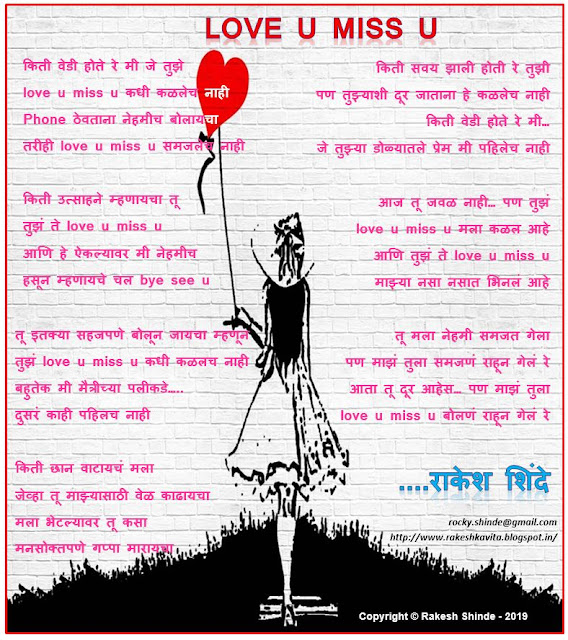 LOVE U MISS U
किती वेडी होते रे मी जे तुझे
love u miss u कधी कळलेच नाही
Phone ठेवताना नेहमीच बोलायचा
तरीही love u miss u समजलेच नाही
किती उत्साहने म्हणायचा तू
तुझं ते love u miss u
आणि हे ऐकल्यावर मी नेहमीच
हसून म्हणायचे चल bye see u
तू इतक्या सहजपणे बोलून जायचा म्हणून
तुझं love u miss u कधी कळलच नाही
बहुतेक मी मैत्रीच्या पलीकडे.....
दुसरं काही पहिलच नाही
किती छान वाटायचं मला
जेव्हा तू माझ्यासाठी वेळ काढायचा
मला भेटल्यावर तू कसा
मनसोक्तपणे गप्पा मारायचा
किती सवय झाली होती रे तुझी
पण तुझ्याशी दूर जाताना हे कळलेच नाही
किती वेडी होते रे मी...
जे तुझ्या डोळ्यातले प्रेम मी पहिलेच नाही
आज तू जवळ नाही... पण तुझं
love u miss u मला कळल आहे
आणि तुझं ते love u miss u
माझ्या नसा नसात भिनलं आहे
तू मला नेहमी समजत गेला
पण माझं तुला समजणं राहून गेलं रे
आता तू दूर आहेस... पण माझं तुला
love u miss u बोलणं राहून गेलं रे
....राकेश शिंदे
rocky.shinde@gmail.com
http://www.rakeshkavita.blogspot.in/
Copyright © Rakesh Shinde - 2019